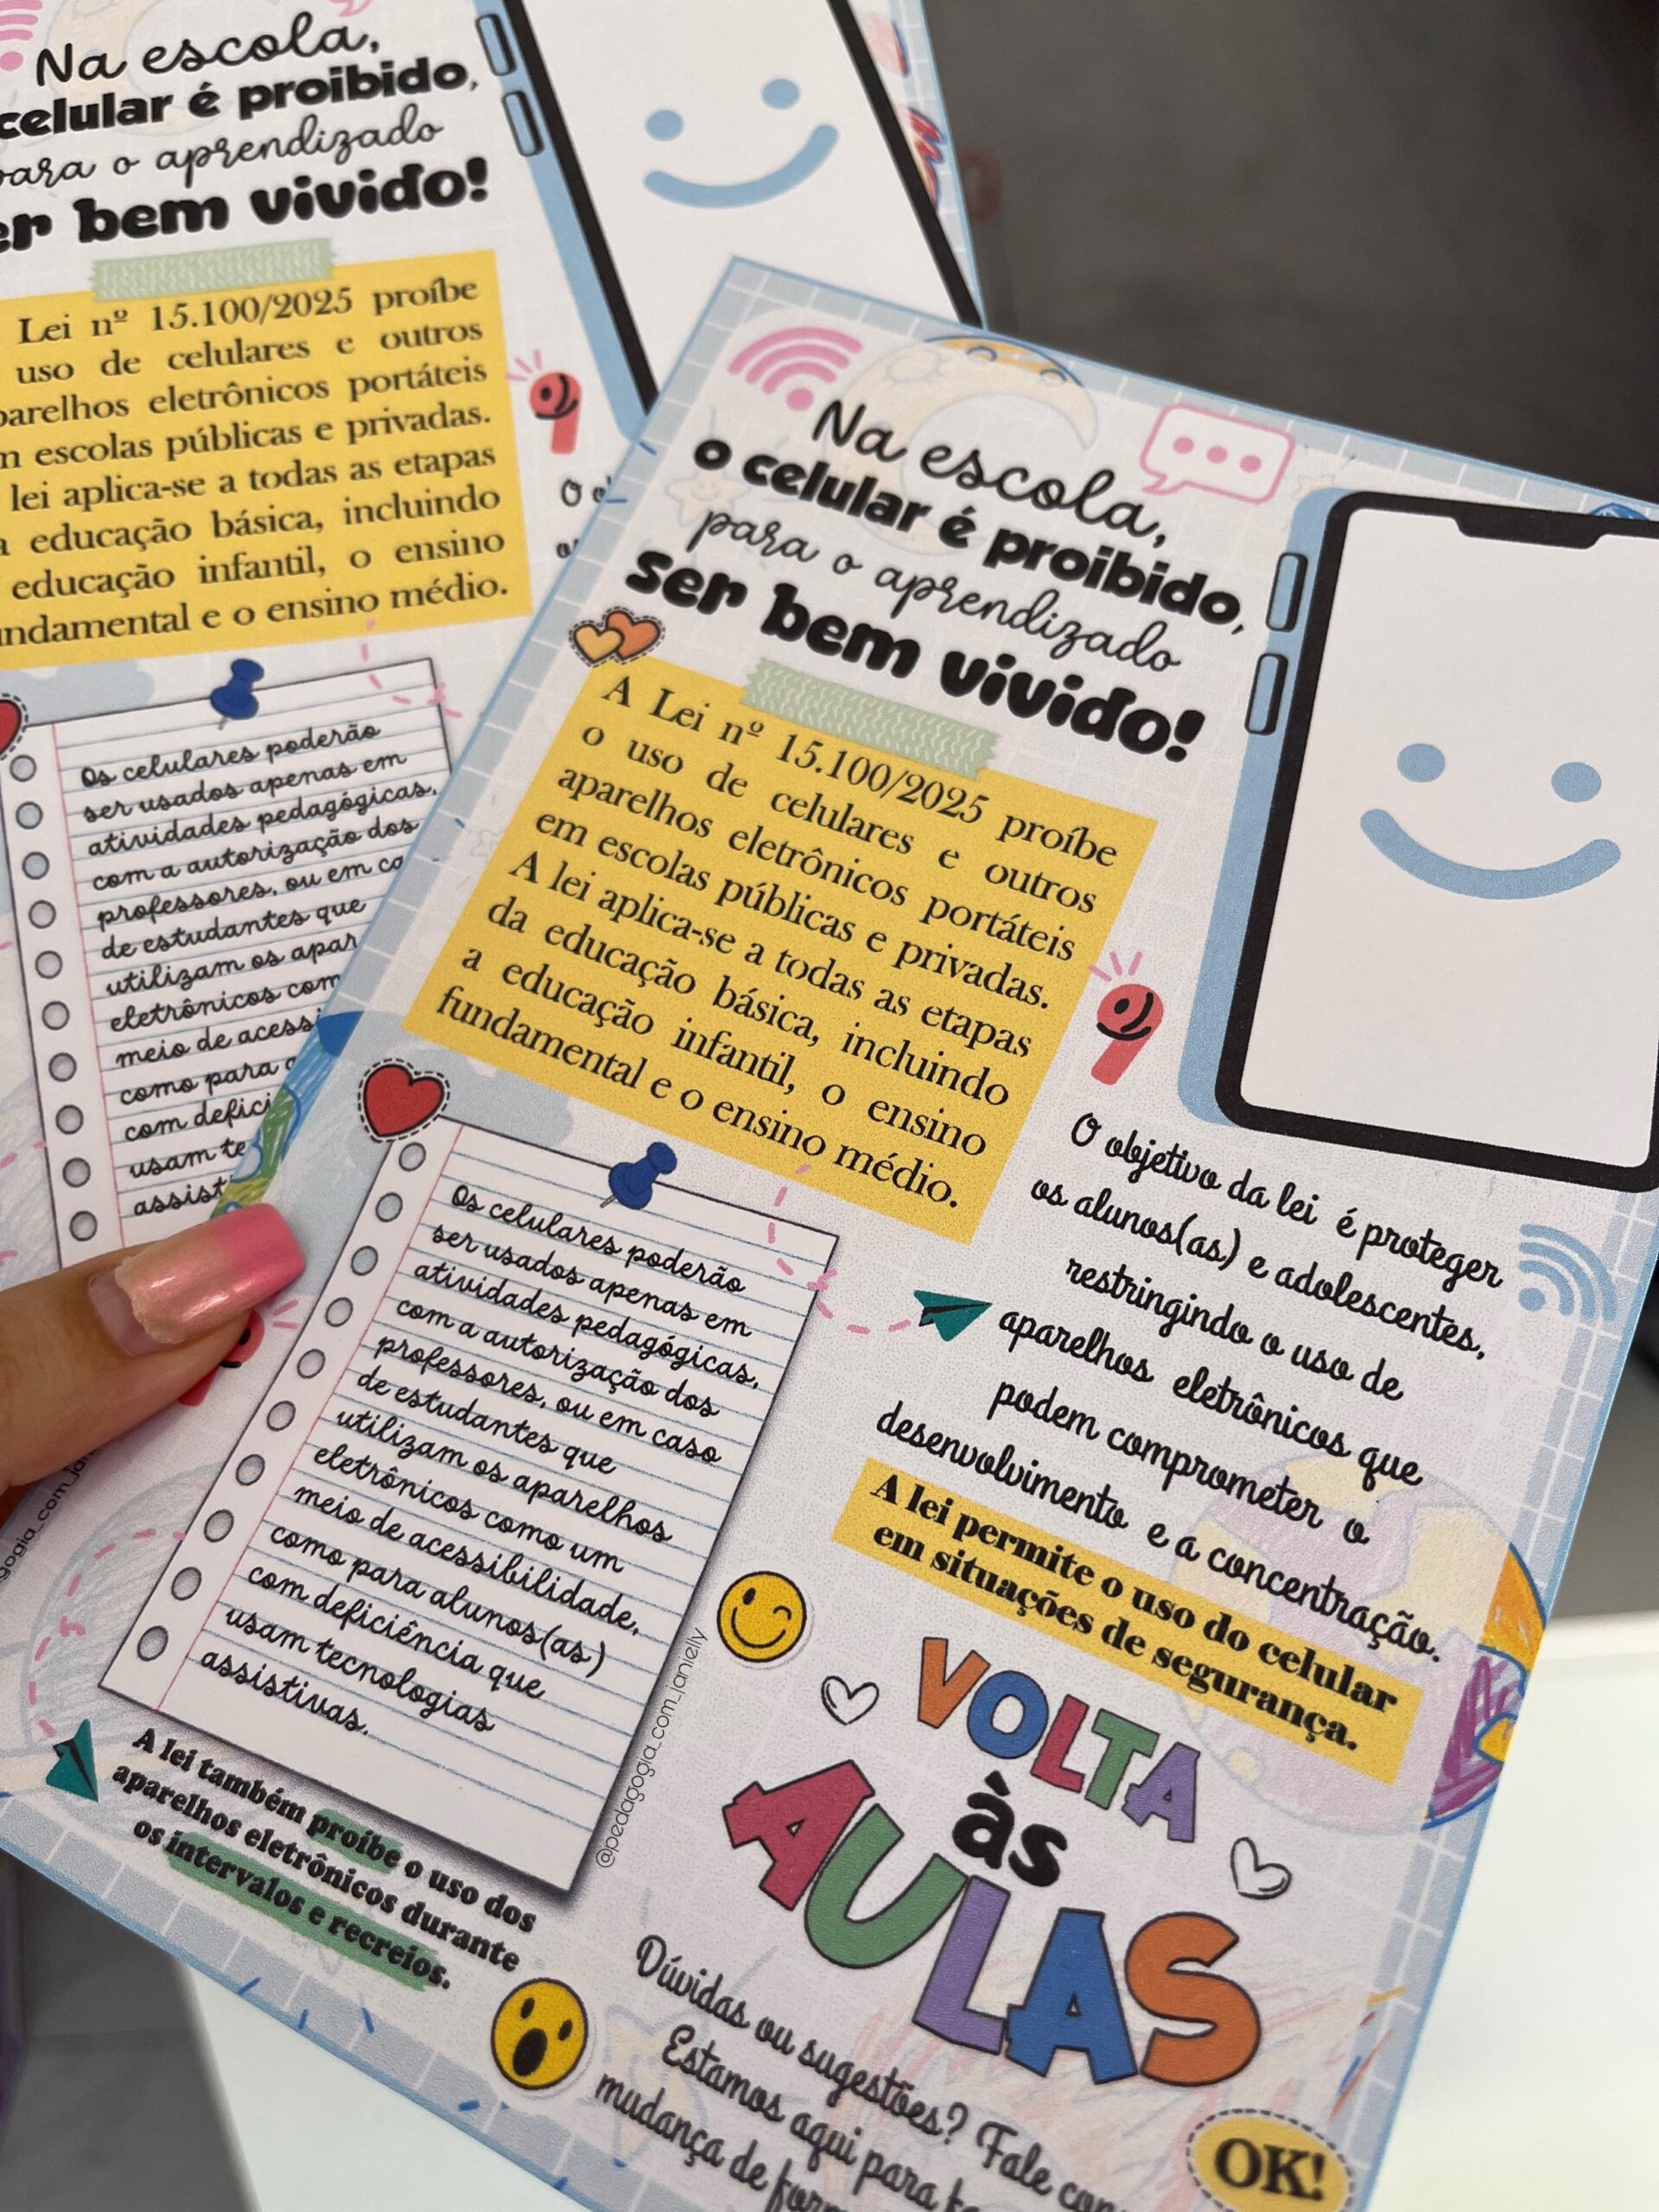 Na escola,
celular é proibido,
para o aprendizado
bem vivido!
Lei nº 15.100/2025 proíbe
uso de celulares e outros
eletrônicos portáteis
escolas públicas e privadas.
lei aplica-se a todas as etapas
educação básica, incluindo
educação infantil, o ensino
e o ensino médio.
Os celulares poderão
ser usados apenas em
atividades pedagógicas,
com a autorização dos
professores, ou em
de estudantes que
utilizam os
eletrônicos
meio de
como para
com
usam
O
Na escola,
o celular é proibido,
para o aprendizado
ser bem vivido!
A Lei nº 15.100/2025 proíbe
o uso de celulares e outros
aparelhos eletrônicos portáteis
em escolas públicas e privadas.
A lei aplica-se a todas as etapas
da educação básica, incluindo
a educação infantil, o ensino
fundamental e o ensino médio.
Os celulares poderão
ser usados apenas em
atividades pedagógicas,
com a autorização dos
professores, ou em caso
de estudantes que
utilizam os aparelhos
eletrônicos como um
meio de acessibilidade,
como para alunos(as)
com deficiência que
usam tecnologias
assistivas.
A lei também proíbe o uso dos
aparelhos eletrônicos durante
os intervalos e recreios.
@pedagogia_com_ianielly
O objetivo da lei é proteger
os alunos(as) e adolescentes,
restringindo o uso de
aparelhos eletrônicos que
podem comprometer o
desenvolvimento e a concentração.
A lei permite o uso do celular
em situações de segurança.
VOLTA
às
AULAS
Dúvidas ou sugestões? Fale
Estamos aqui para
mudança de
OK!